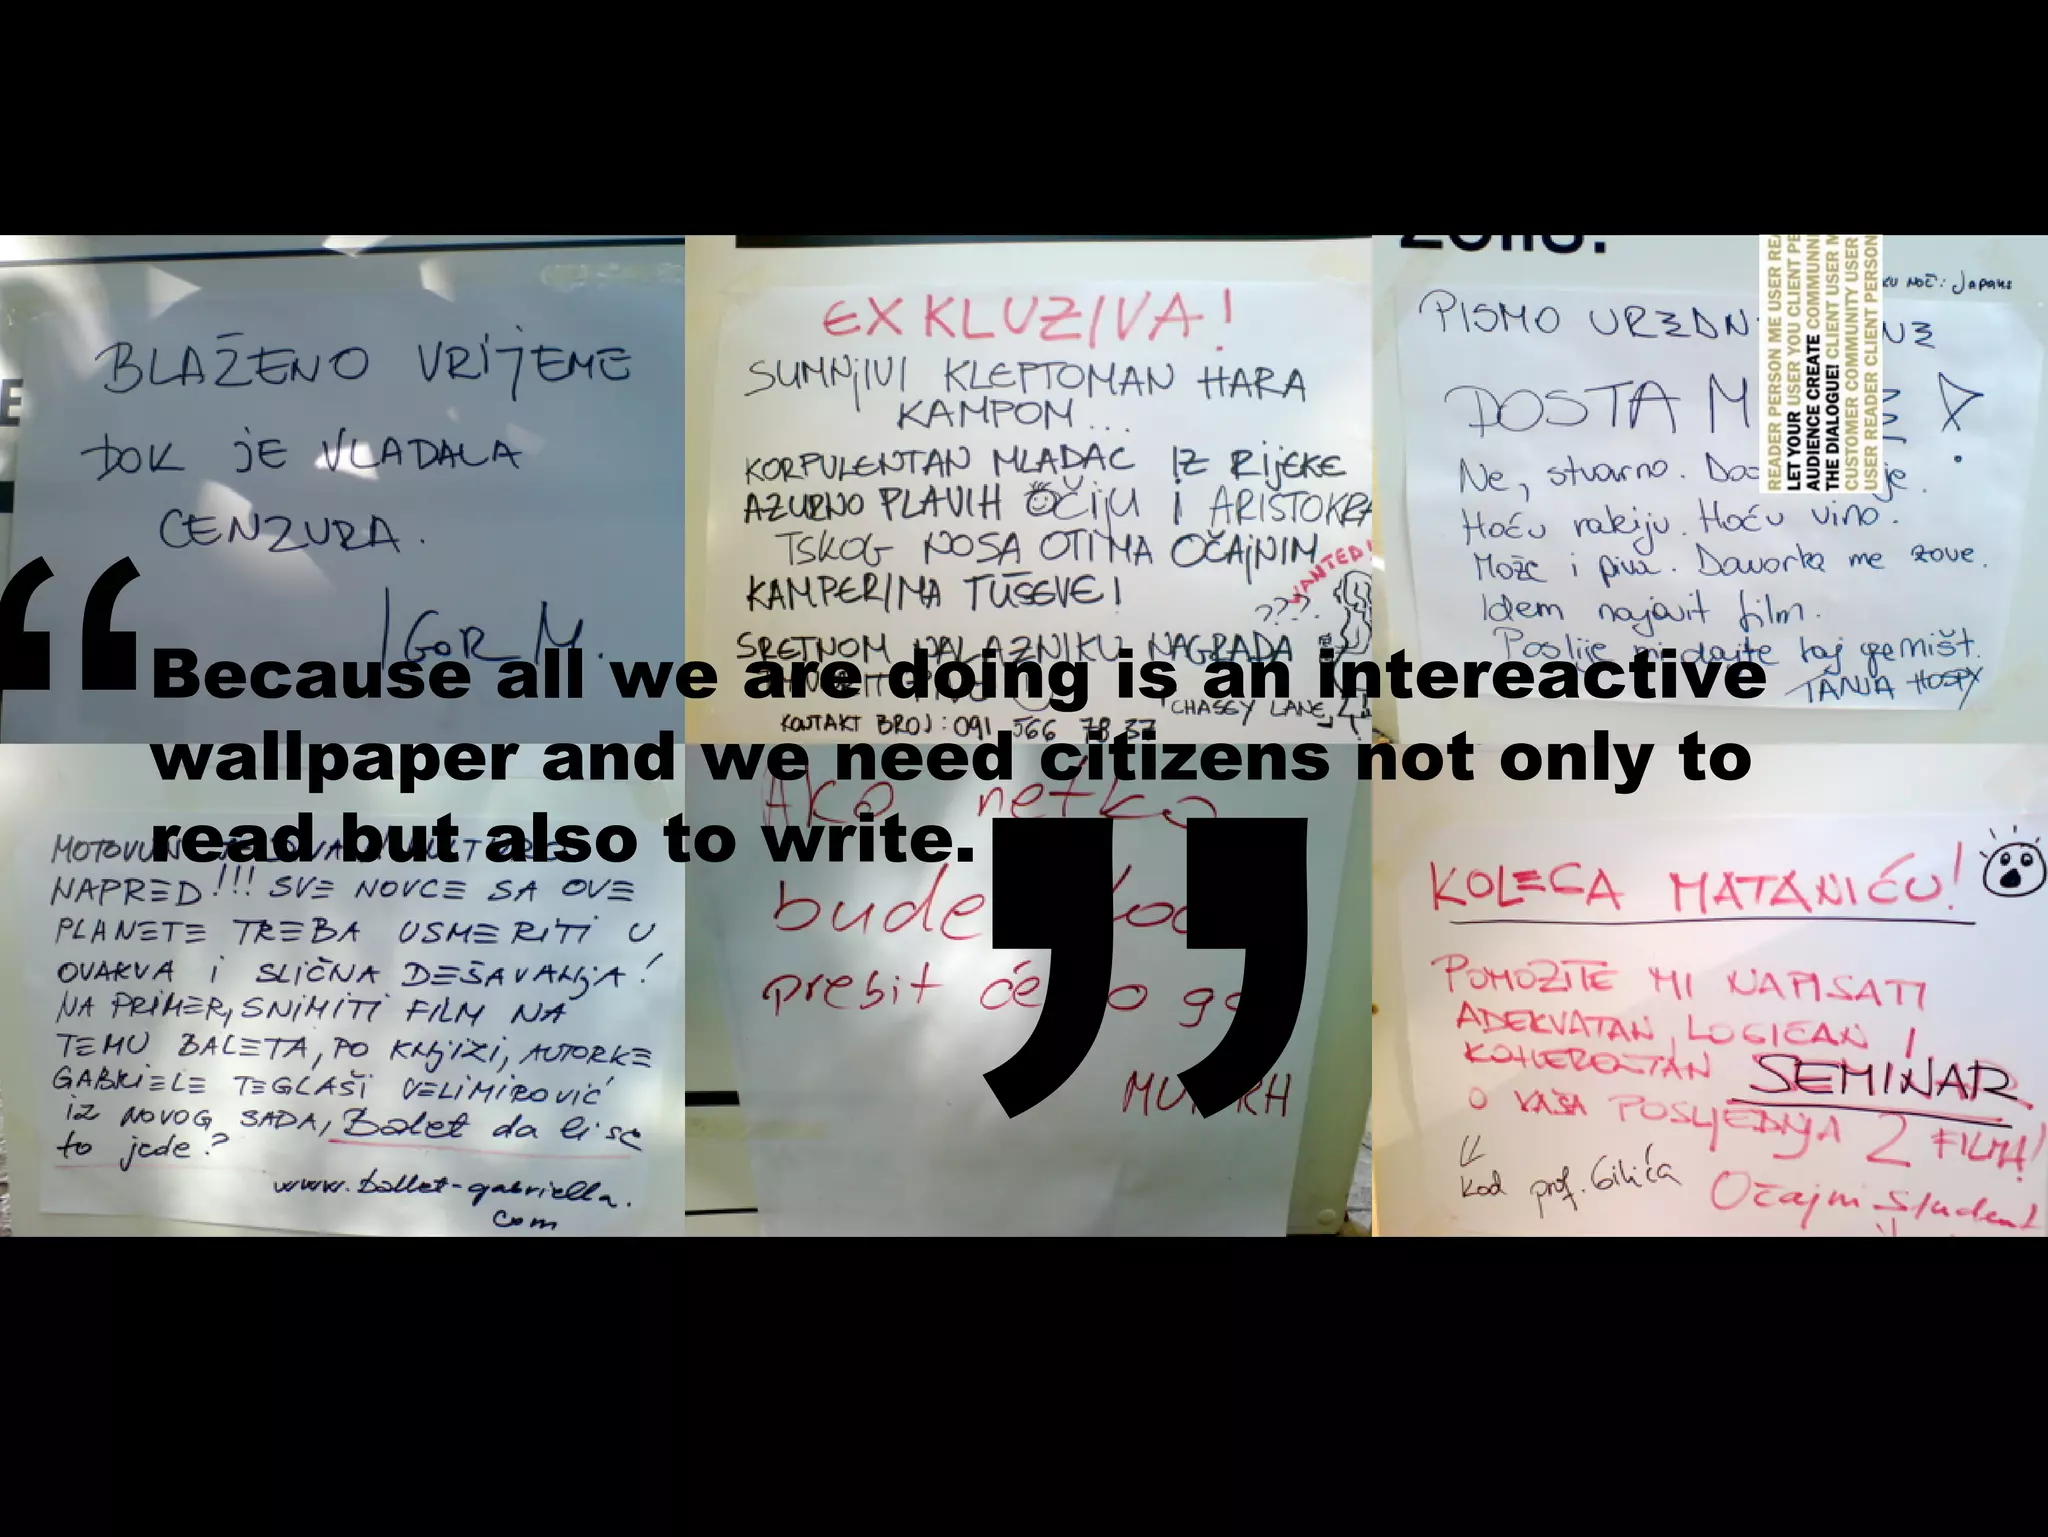 BLAŽENO VRIJEME
DOK JE VLADALA
CENZURA.
IGOR M.
EXKLUZIVA!
SUMNJIVI KLEPTOMAN HARA
KAMPOM...
KORPULENTAN MLADAC IZ RIJEKE
AZURNO PLAVIH OČIJU I ARISTOKRA
TSKOG NOSA OTIMA OČAJNIM
KAMPERIMA TUŠEVE!
WANTED!
???
SRETNOM NALAZNIKU NAGRADA
CHASEY LANE
KONTAKT BROJ: 091 566 78 37
ZONU.
NOĆ: Japans
PISMO UREDN
DOSTA M !
Ne, stvarno. je.
Hoću rakiju. Hoću vino.
Može i piva. Davorka me zove.
Idem najavit film.
Poslije mi dajte taj gemišt.
TANJA HOSPY
READER PERSON ME USER REA
LET YOUR USER YOU CLIENT PE
AUDIENCE CREATE COMMUNI
THE DIALOGUE! CLIENT USER M
CUSTOMER COMMUNITY USER
USER READER CLIENT PERSON
“Because all we are doing is an intereactive
wallpaper and we need citizens not only to
read but also to write.”
MOTOVUN
NAPRED!!! SVE NOVCE SA OVE
PLANETE TREBA USMERITI U
OVAKVA I SLIČNA DEŠAVANJA!
NA PRIMER, SNIMITI FILM NA
TEMU BALETA, PO KNJIZI, AUTORKE
GABRIELE TEGLAŠI VELIMIROVIĆ
IZ NOVOG SADA, Balet da li se
to jede?
www.ballet-gabriella.
com
Ako netko
bude
prebit ćemo ga
KOLEGA MATANIĆU!
POMOZITE MI NAPISATI
ADEKVATAN, LOGIČAN I
KOHERENTAN SEMINAR
O VAŠA POSLJEDNJA 2 FILMA!
kod prof. Gilića
Očajni student